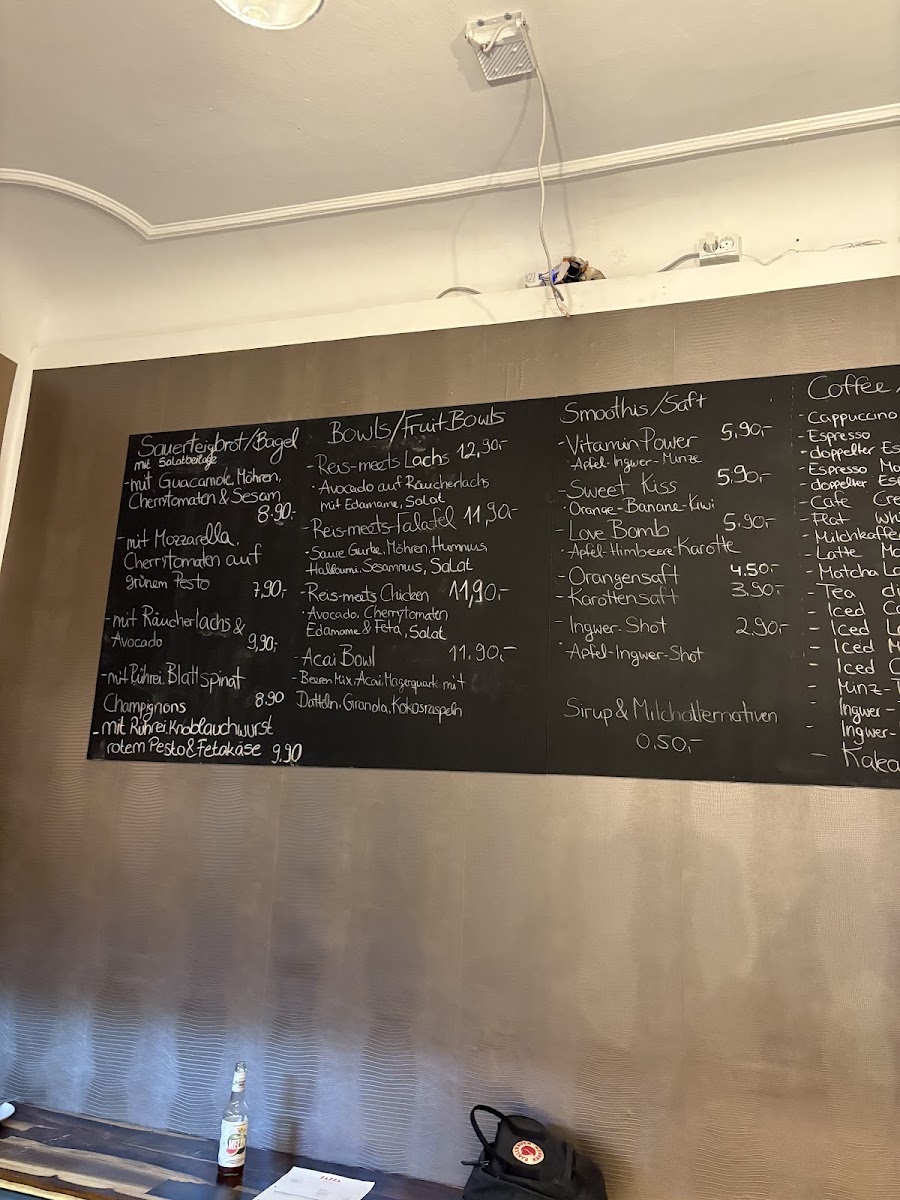 Sauerteigbrot/Bagel
mit Salatbeilage
- mit Guacamole, Möhren,
Cherrytomaten & Sesam
8.90,-
- mit Mozzarella,
Cherrytomaten auf
grünem Pesto 7,90,-
- mit Räucherlachs &
Avocado 9,90,-
- mit Rührei, Blattspinat
Champignons 8.90
- mit Rührei, Knoblauchwurst
rotem Pesto & Fetakäse 9,90
Bowls/Fruit Bowls
- Reis-meets Lachs 12,90,-
· Avocado auf Räucherlachs
mit Edamame, Salat
- Reis-meets-Falafel 11,90-
· Saure Gurke, Möhren, Hummus,
Halloumi, Sesamnus, Salat
- Reis-meets Chicken 11,90,-
· Avocado, Cherrytomaten
Edamame & Feta, Salat
- Acai Bowl 11.90,-
- Beeren Mix, Acai, Magerquark mit
Datteln, Granola, Kokosraspeln
Smoothis/Saft
- Vitamin Power 5,90,-
· Apfel-Ingwer-Minze
- Sweet Kiss 5.90,-
· Orange-Banane-Kiwi
- Love Bomb 5.90,-
· Apfel-Himbeere-Karotte
- Orangensaft 4.50,-
- Karottensaft 3.90,-
- Ingwer-Shot 2,90,-
· Apfel-Ingwer-Shot
Sirup & Milchalternativen
0,50,-
Coffee
- Cappuccino
- Espresso
- doppelter Es
- Espresso Ma
- doppelter Esp
- Cafe Cre
- Flat Whi
- Milchkaffe
- Latte Ma
- Matcha La
- Tea di
- Iced Ca
- Iced La
- Iced M
- Iced C
- Minz-T
- Ingwer-
- Ingwer-
- Kaka